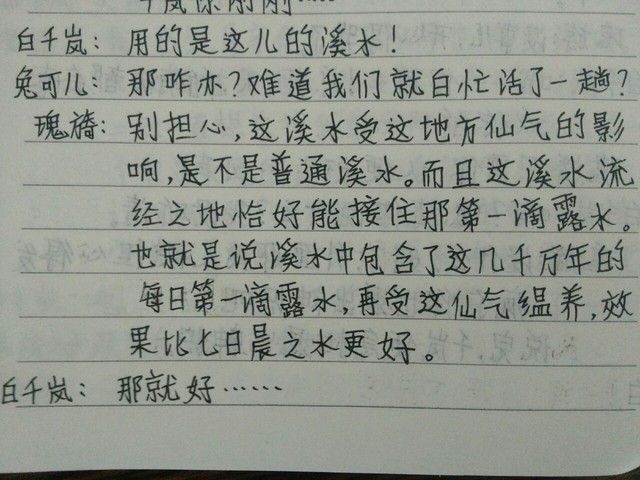 白千岚：用的是这儿的溪水！
兔可儿：那咋办？难道我们就白忙活了一趟？
瑰旖：别担心，这溪水受这地方仙气的影
响，是不是普通溪水。而且这溪水流
经之地恰好能接住那第一滴露水。
也就是说溪水中包含了这几千万年的
每日第一滴露水，再受这仙气缊养，效
果比七日晨之水更好。
白千岚：那就好……